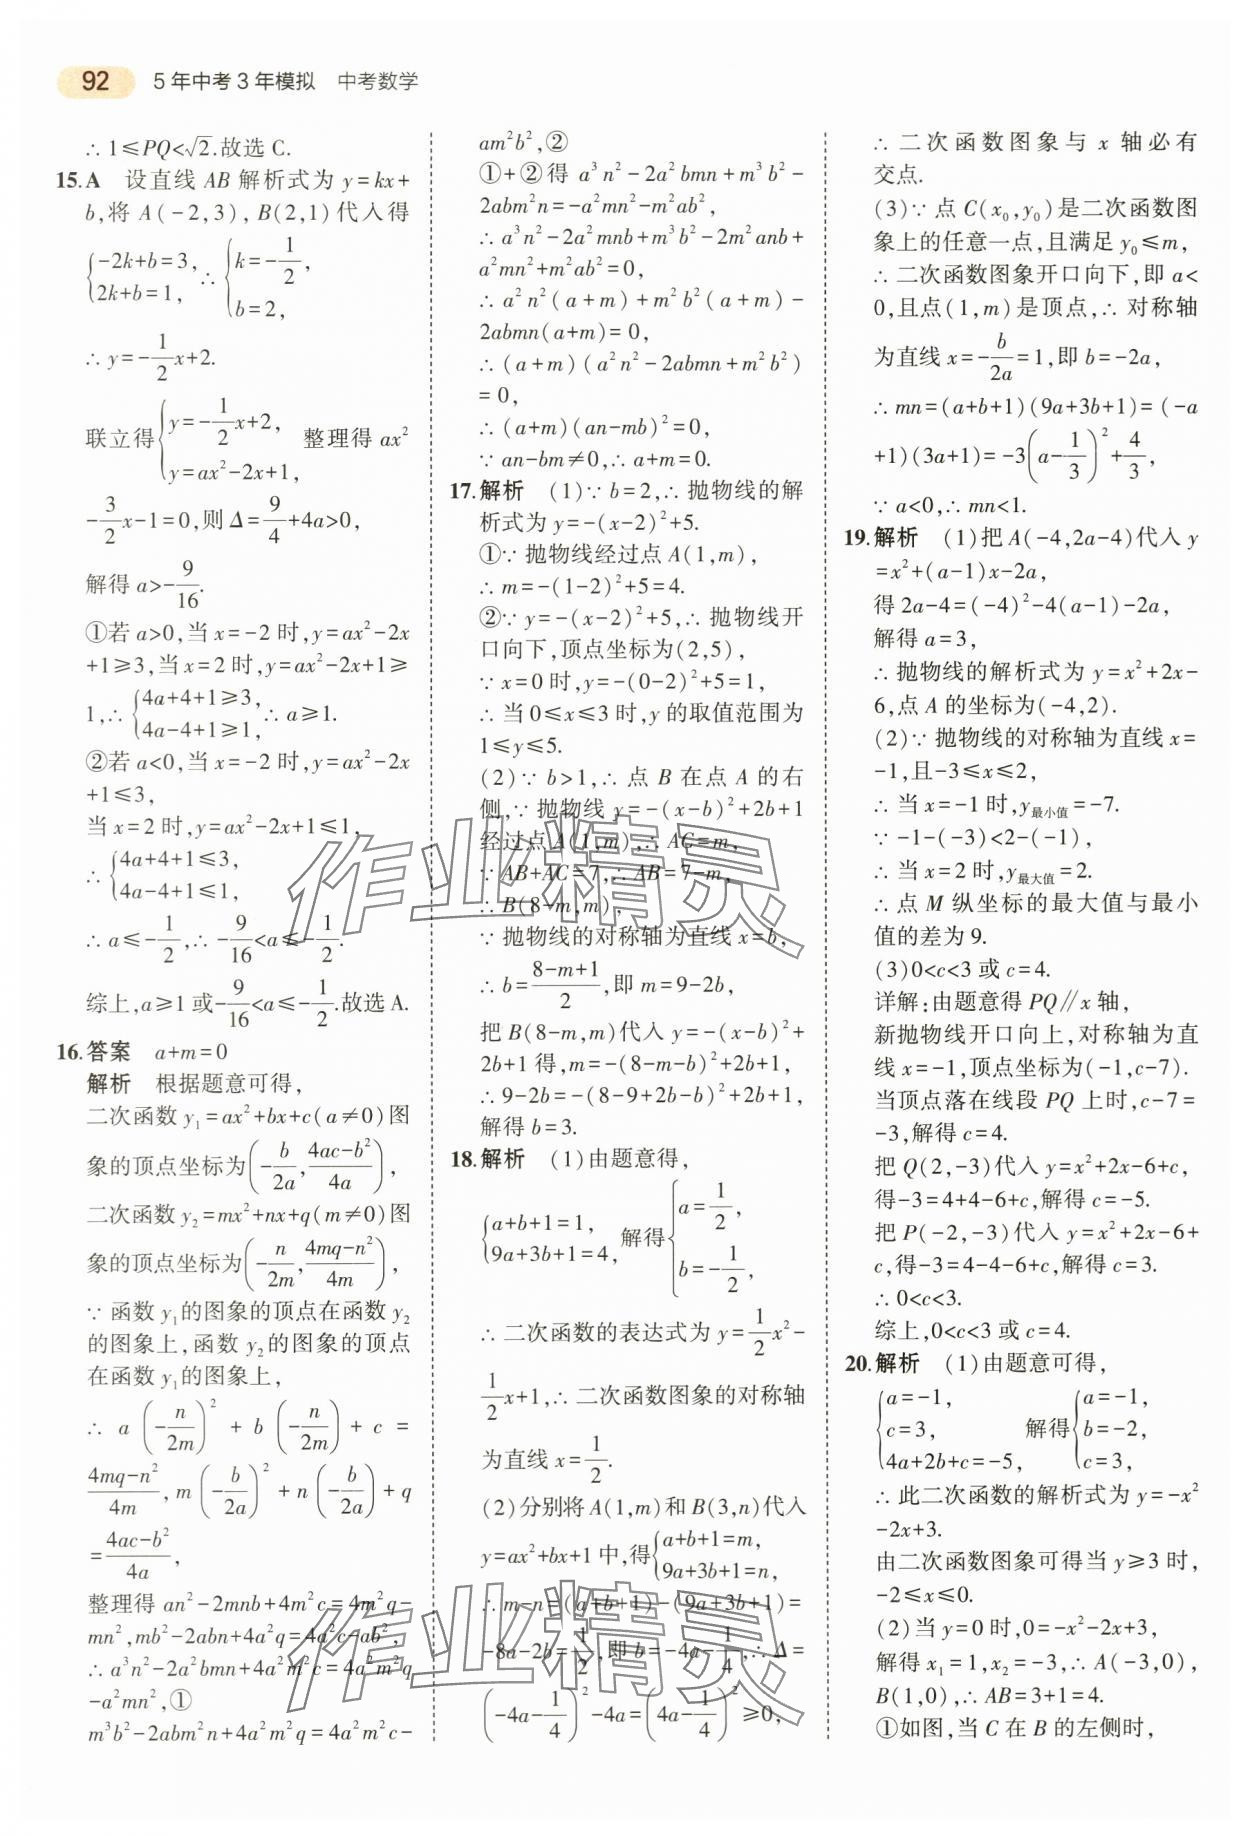 92 5年中考3年模拟 中考数学
∴ 1≤PQ<√2.故选 C.
15.A 设直线 AB 解析式为 y=kx+
b,将 A(-2,3),B(2,1)代入得
{-2k+b=3, 2k+b=1, ∴ {k=-1/2, b=2,
∴ y=-1/2x+2.
联立得{y=-1/2x+2, y=ax²-2x+1, 整理得 ax²
-3/2x-1=0,则 Δ=9/4+4a>0,
解得 a>-9/16.
①若 a>0,当 x=-2 时,y=ax²-2x
+1≥3,当 x=2 时,y=ax²-2x+1≥
1,∴ {4a+4+1≥3, 4a-4+1≥1, ∴ a≥1.
②若 a<0,当 x=-2 时,y=ax²-2x
+1≤3,
当 x=2 时,y=ax²-2x+1≤1,
∴ {4a+4+1≤3, 4a-4+1≤1,
∴ a≤-1/2,∴ -9/16<a≤-1/2.
综上,a≥1 或-9/16<a≤-1/2.故选 A.
16.答案 a+m=0
解析 根据题意可得,
二次函数 y₁=ax²+bx+c(a≠0)图
象的顶点坐标为(-b/2a,(4ac-b²)/4a),
二次函数 y₂=mx²+nx+q(m≠0)图
象的顶点坐标为(-n/2m,(4mq-n²)/4m),
∵ 函数 y₁的图象的顶点在函数 y₂
的图象上,函数 y₂的图象的顶点
在函数 y₁的图象上,
∴ a(-n/2m)²+b(-n/2m)+c=
(4mq-n²)/4m,m(-b/2a)²+n(-b/2a)+q
=(4ac-b²)/4a,
整理得 an²-2mnb+4m²c=4m²q-
mn²,mb²-2abn+4a²q=4a²c-ab²,
∴ a³n²-2a²bmn+4a²m²c=4a²m²q
-a²mn²,①
m³b²-2abm²n+4a²m²q=4a²m²c-
am²b²,②
①+②得 a³n²-2a²bmn+m³b²-
2abm²n=-a²mn²-m²ab²,
∴ a³n²-2a²mnb+m³b²-2m²anb+
a²mn²+m²ab²=0,
∴ a²n²(a+m)+m²b²(a+m)-
2abmn(a+m)=0,
∴ (a+m)(a²n²-2abmn+m²b²)
=0,
∴ (a+m)(an-mb)²=0,
∵ an-bm≠0,∴ a+m=0.
17.解析 (1)∵ b=2,∴ 抛物线的解
析式为 y=-(x-2)²+5.
①∵ 抛物线经过点 A(1,m),
∴ m=-(1-2)²+5=4.
②∵ y=-(x-2)²+5,∴ 抛物线开
口向下,顶点坐标为(2,5),
∵ x=0 时,y=-(0-2)²+5=1,
∴ 当 0≤x≤3 时,y 的取值范围为
1≤y≤5.
(2)∵ b>1,∴ 点 B 在点 A 的右
侧,∵ 抛物线 y=-(x-b)²+2b+1
经过点 A(1,m),∴ AC=m,
∵ AB+AC=7,∴ AB=7-m,
∴ B(8-m,m),
∵ 抛物线的对称轴为直线 x=b,
∴ b=(8-m+1)/2,即 m=9-2b,
把 B(8-m,m)代入 y=-(x-b)²+
2b+1 得,m=-(8-m-b)²+2b+1,
∴ 9-2b=-(8-9+2b-b)²+2b+1,
解得 b=3.
18.解析 (1)由题意得,
{a+b+1=1, 9a+3b+1=4, 解得{a=1/2, b=-1/2,
∴ 二次函数的表达式为 y=1/2x²-
1/2x+1,∴ 二次函数图象的对称轴
为直线 x=1/2.
(2)分别将 A(1,m)和 B(3,n)代入
y=ax²+bx+1 中,得{a+b+1=m, 9a+3b+1=n,
∴ m-n=(a+b+1)-(9a+3b+1)=
-8a-2b=1/2,即 b=-4a-1/4,∴ Δ=
(-4a-1/4)²-4a=(4a-1/4)²≥0,
∴ 二次函数图象与 x 轴必有
交点.
(3)∵ 点 C(x₀,y₀)是二次函数图
象上的任意一点,且满足 y₀≤m,
∴ 二次函数图象开口向下,即 a<
0,且点(1,m)是顶点,∴ 对称轴
为直线 x=-b/2a=1,即 b=-2a,
∴ mn=(a+b+1)(9a+3b+1)=(-a
+1)(3a+1)=-3(a-1/3)²+4/3,
∵ a<0,∴ mn<1.
19.解析 (1)把 A(-4,2a-4)代入 y
=x²+(a-1)x-2a,
得 2a-4=(-4)²-4(a-1)-2a,
解得 a=3,
∴ 抛物线的解析式为 y=x²+2x-
6,点 A 的坐标为(-4,2).
(2)∵ 抛物线的对称轴为直线 x=
-1,且-3≤x≤2,
∴ 当 x=-1 时,y最小值=-7.
∵ -1-(-3)<2-(-1),
∴ 当 x=2 时,y最大值=2.
∴ 点 M 纵坐标的最大值与最小
值的差为 9.
(3)0<c<3 或 c=4.
详解:由题意得 PQ∥x 轴,
新抛物线开口向上,对称轴为直
线 x=-1,顶点坐标为(-1,c-7).
当顶点落在线段 PQ 上时,c-7=
-3,解得 c=4.
把 Q(2,-3)代入 y=x²+2x-6+c,
得-3=4+4-6+c,解得 c=-5.
把 P(-2,-3)代入 y=x²+2x-6+
c,得-3=4-4-6+c,解得 c=3.
∴ 0<c<3.
综上,0<c<3 或 c=4.
20.解析 (1)由题意可得,
{a=-1, c=3, 4a+2b+c=-5, 解得{a=-1, b=-2, c=3,
∴ 此二次函数的解析式为 y=-x²
-2x+3.
由二次函数图象可得当 y≥3 时,
-2≤x≤0.
(2)当 y=0 时,0=-x²-2x+3,
解得 x₁=1,x₂=-3,∴ A(-3,0),
B(1,0),∴ AB=3+1=4.
①如图,当 C 在 B 的左侧时,
作业精灵
作业精灵